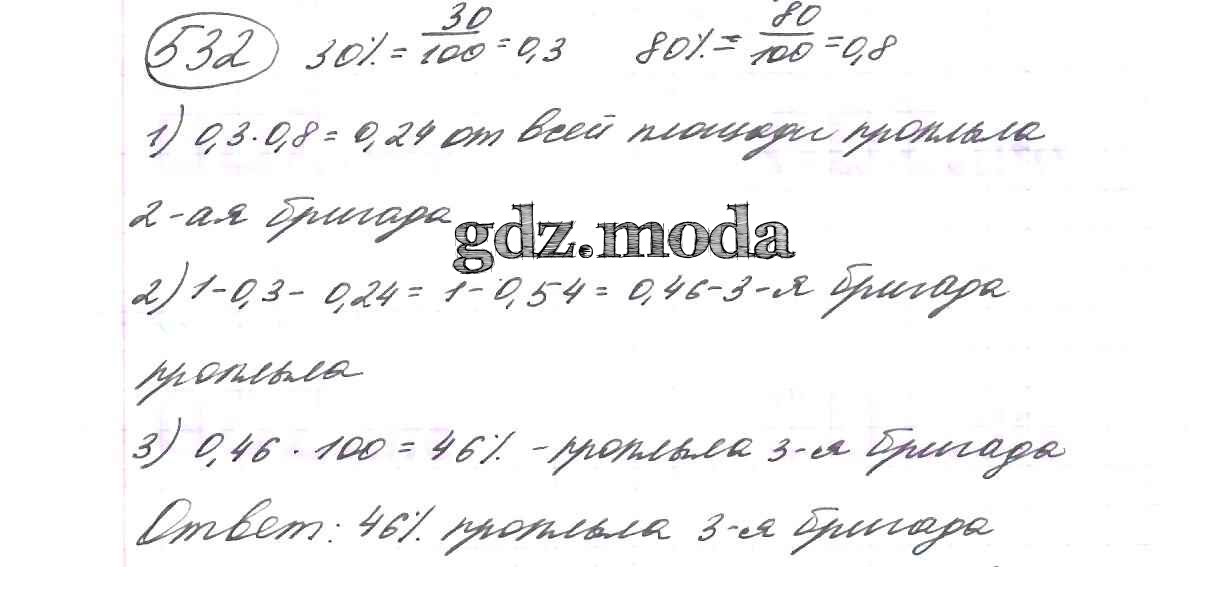 532 30% = 30/100 = 0,3 80% = 80/100 = 0,8
1) 0,3 · 0,8 = 0,24 от всей площади прополола
2-ая бригада
gdz.moda
2) 1 - 0,3 - 0,24 = 1 - 0,54 = 0,46 - 3-я бригада
прополола
3) 0,46 · 100 = 46% - прополола 3-я бригада
Ответ: 46% прополола 3-я бригада